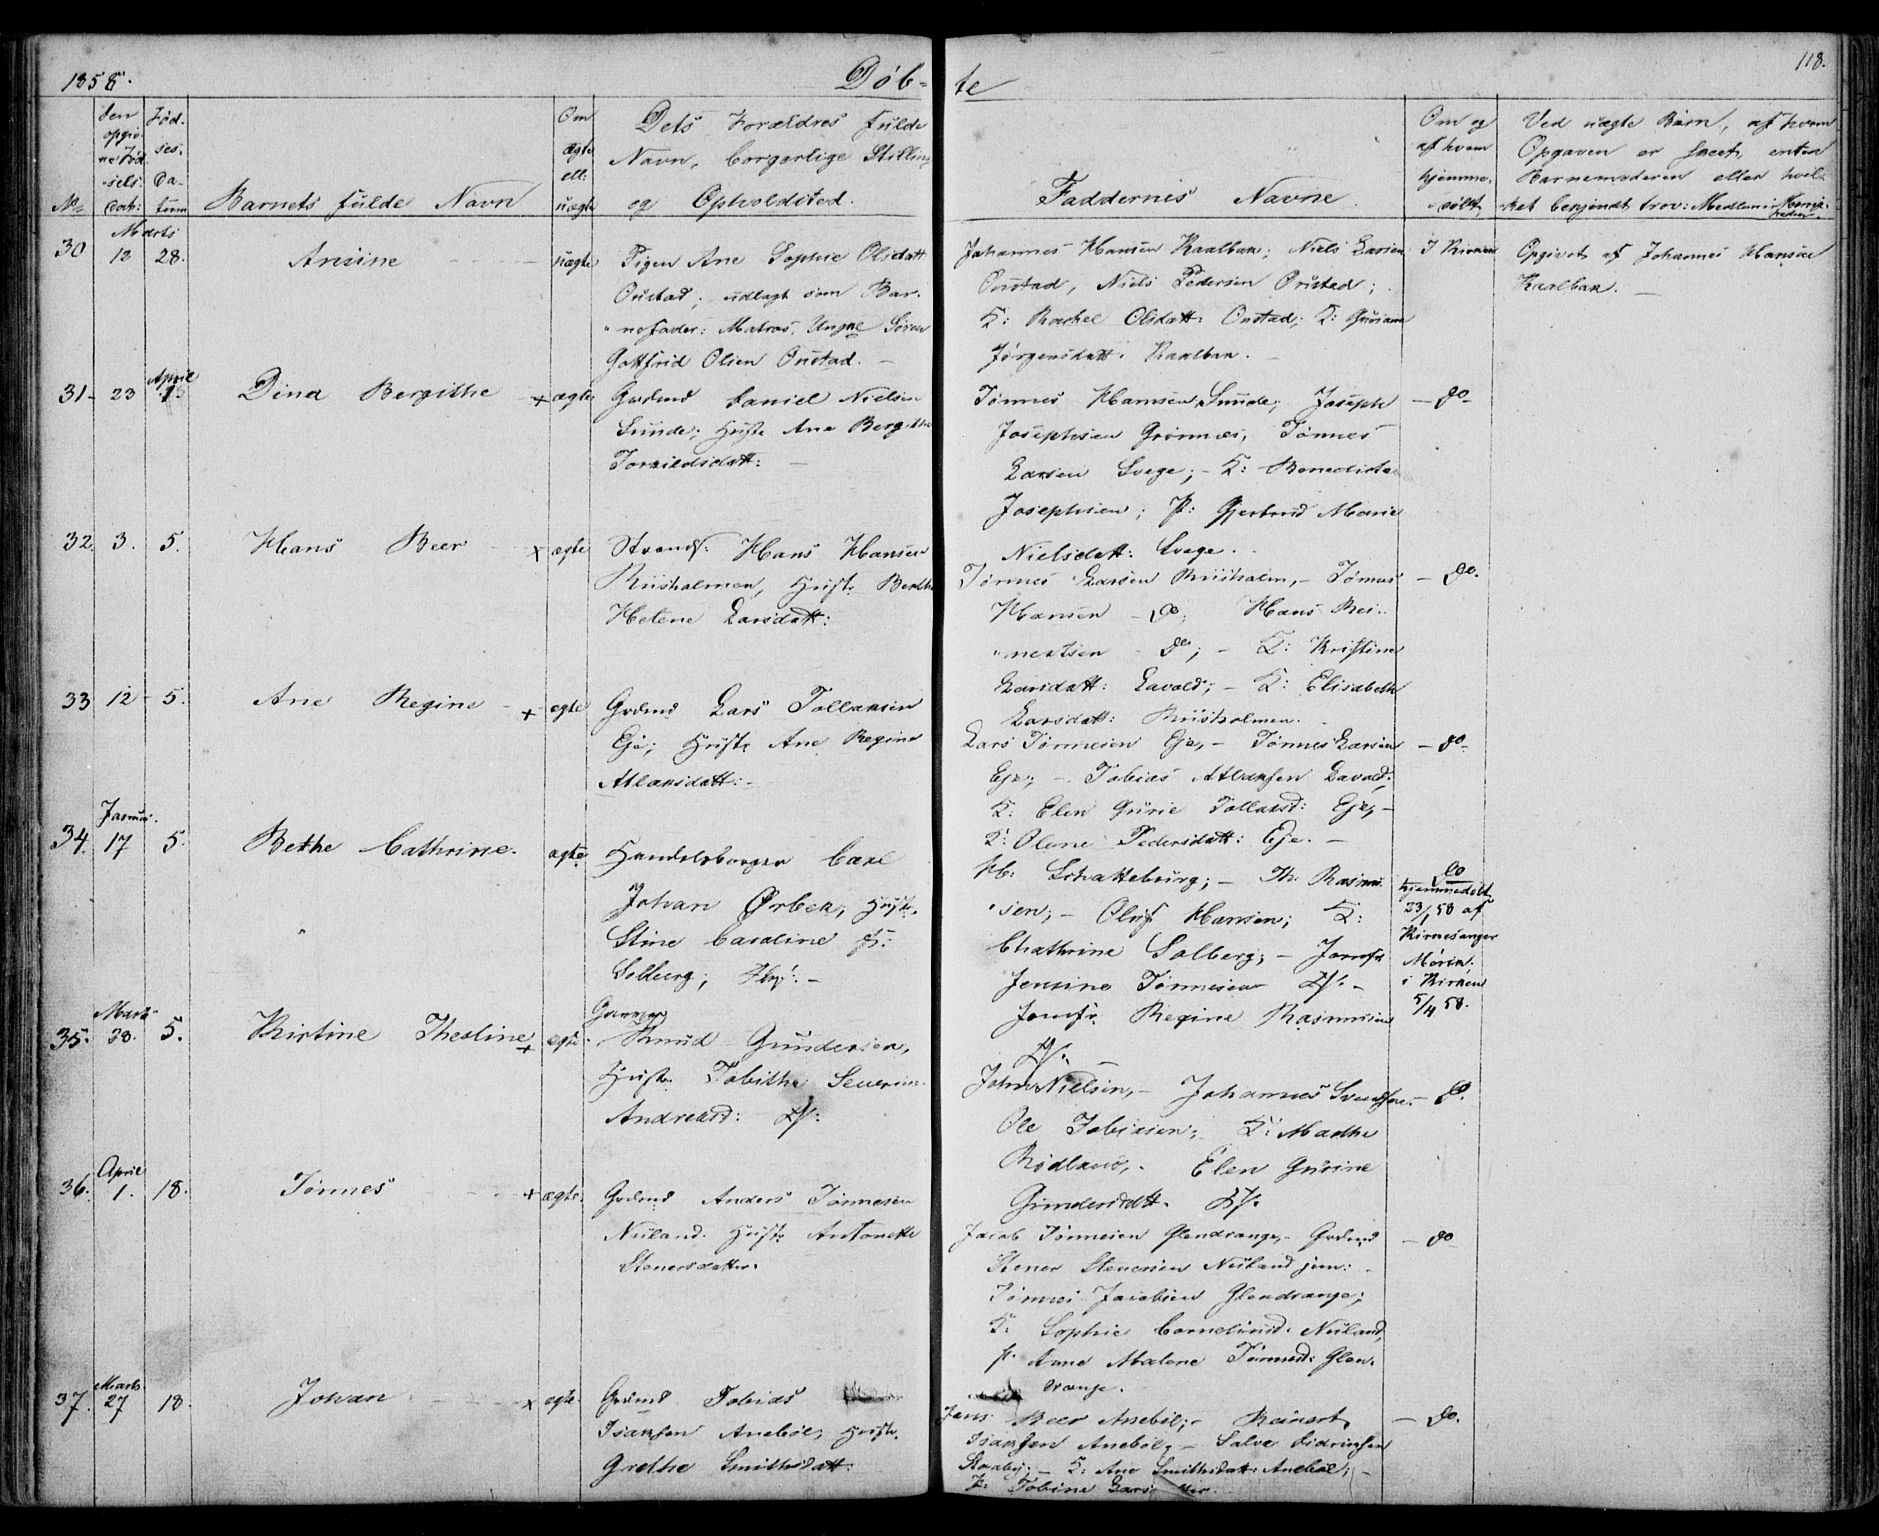 1858.
Døb-
te
118.
No
Den opgivne Fødselsdato:
Fødselsdatum
Barnets fulde Navn
Om ægte ell: uægte
Dets Forældres fulde
Navn, borgerlige Stilling
og Opholdsted.
Faddernes Navne
Om og af hvem hjemmedøbt
Ved uægte Børn, af hvem
Opgaven er skeet, enten
Barnemoderen eller
bekjendt trov: Medlem i
Marts
30 12 28. Ansine uægte Pigen Ane Sophie Olsdatt
Onstad; udlagt som Bar-
nefader: Matros, Ungkl Søren
Gottfrid Olsen Onstad.
Johannes Hansen Kaalbak; Niels Larsen
Onstad, Niels Pedersen Onstad;
K: Rachel Olsdatt: Onstad; K: Guriane
Jørgensdatt: Kaalbak.
I Kirken
Opgivet af Johannes Hansen
Kaalbak.
April
31 23 Dina Bergithe + ægte Grdmd Daniel Nielsen
Sunde; Hustr Ane Bergithe
Torkildsdatt:
Tønnes Hansen Sunde; Joseph
Josephsen Grønnes, Tønnes
Larsen Svege; - K: Benedicte
Josephsen; P: Gjertrud Marie
Nielsdatt: Svege.
- do -
32. 3. 5. Hans Beer x ægte Strands: Hans Hansen
Riisholmen, Hustr Berthe
Helene Larsdatt:
Tønnes Larsen Riisholm, - Tønnes
Hansen - do; Hans Rei-
nertsen - do; - K: Kristine
Larsdatt: Lavold; - K: Elisabeth
Larsdatt: Riisholmen.
- do.
33 12 - 5. Ane Regine + egte Grdmd Lars Tollaksen
Eje; Hustr Ane Regine
Atlaksdatt: -
Lars Tønnesen Eje, - Tønnes Larsen
Eje; - Tobias Atlaksen Lavold;
K: Elen Gurie Tollaksd: Eje, -
K: Olene Pedersdatt: Eje. -
- do -
Januar.
34. 17 5. Bethe Cathrine. ægte Handelsborger Carl
Johan Ørbek, Hustr.
Stine Caroline f:
Solberg;
H: Schatteburg; - Th: Rasmu-
sen; - Oluf Hansen; K:
Chathrine Solberg; - Jomfr
Jensine Tønnesen
Jomfr. Regine Rasmussen
do
hjemmedøbt
23/1 58 af
Kirkesanger
i Kirken
5/4 58.
Marts
35. 28. 5. Kirtine Thesline + egte. Knud Gundersen,
Hustr. Tobithe Severine
Andreasd:
John Nielsen, - Johannes Svendsen.
Ole Tobiasen; K: Madhe
Rødland, Elen Gurine
Gundersdatt.
- do.
April
36. 1. 18. Tønnes + ægte. Grdmd Anders Tønnesen
Nuland. Hustr Antonette
Stenersdatter.
Jacob Tønnesen Glendrange, - Grdmd
Stener Stenersen Nuland jun:
Tønnes Jacobsen Glendrange;
K: Sophie Corneliusd: Nuland,
P. Anne Malene Tønnesd: Glen-
drange.
- do -
Marts
37. 27 18. Johan x egte. Grdmd Tobias
Isaksen Anebøl, Hustr.
Grethe Smithsdatt:
Jens Beer Anebøl; Reinert
Isaksen Anebøl, - Salve Didriksen
K: Ane Smithsdatt: Anebøl; -
P: Tobine
- do.